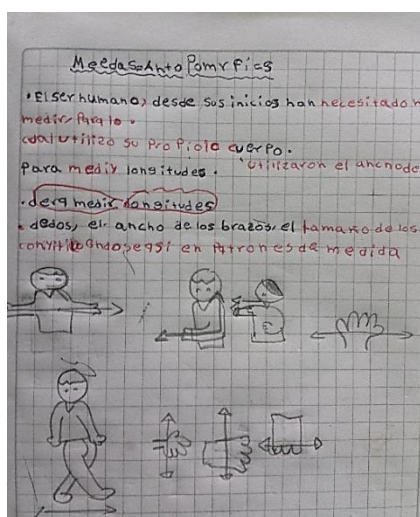 Meedas=AntoPomrfics
• El ser humano, desde sus inicios han necesitado n
medir Para lo.
cual utilizo su propiolo cuerpo.
para medir longitudes. 'utilizaron el ancnode
• dera medir longitudes
• dedos, el ancho de los brazos, el tamaño de los
en Patrones de medida